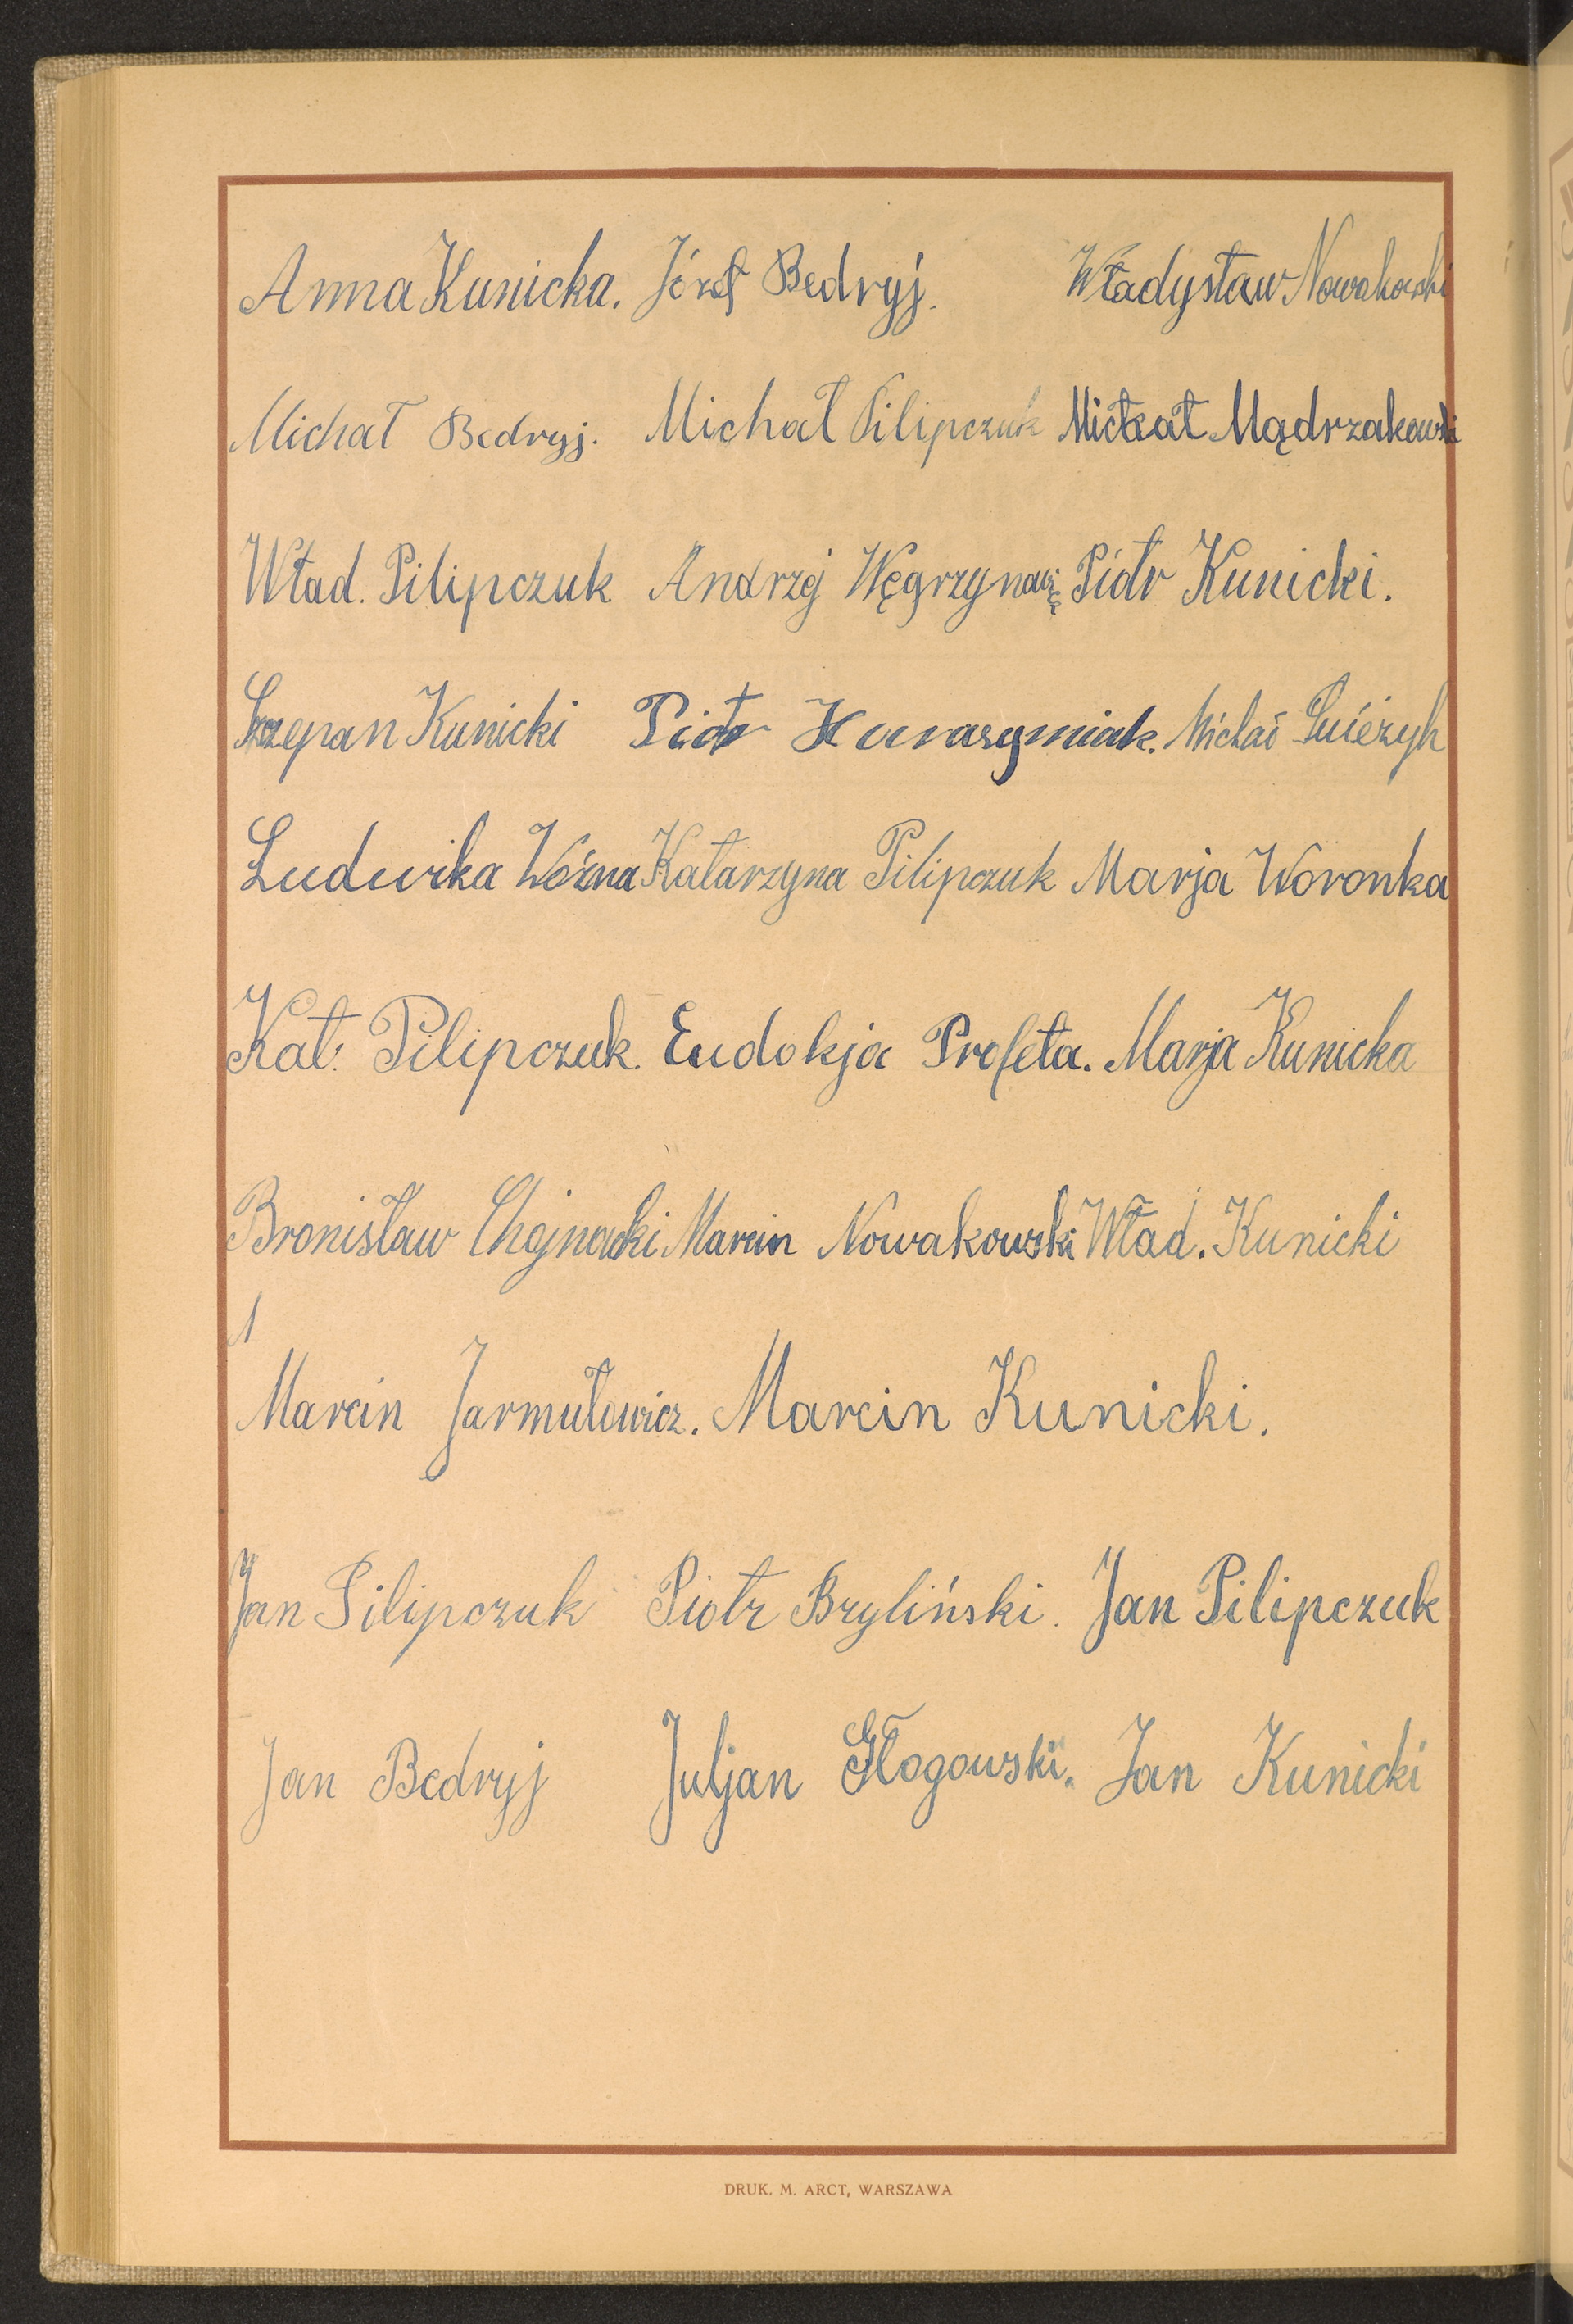 Anna Kunicka. Józef Bedryj. Władysław Nowakowski
Michał Bedryj. Michał Pilipczuk Michał Mądrzakowski
Wład. Pilipczuk Andrzej Piotr Kunicki.
Szczepan Kunicki Piotr Harasymiak. Michał
Ludwika Woźna Katarzyna Pilipczuk Marja Woronka
Kat. Pilipczuk. Eudokja Profeta. Marja Kunicka
Bronisław Chojnacki Marcin Nowakowski Wład. Kunicki
Marcin Jarmułowicz. Marcin Kunicki.
Jan Pilipczuk Piotr Bryliński. Jan Pilipczuk
Jan Bedryj Juljan Głogowski. Jan Kunicki
DRUK. M. ARCT, WARSZAWA